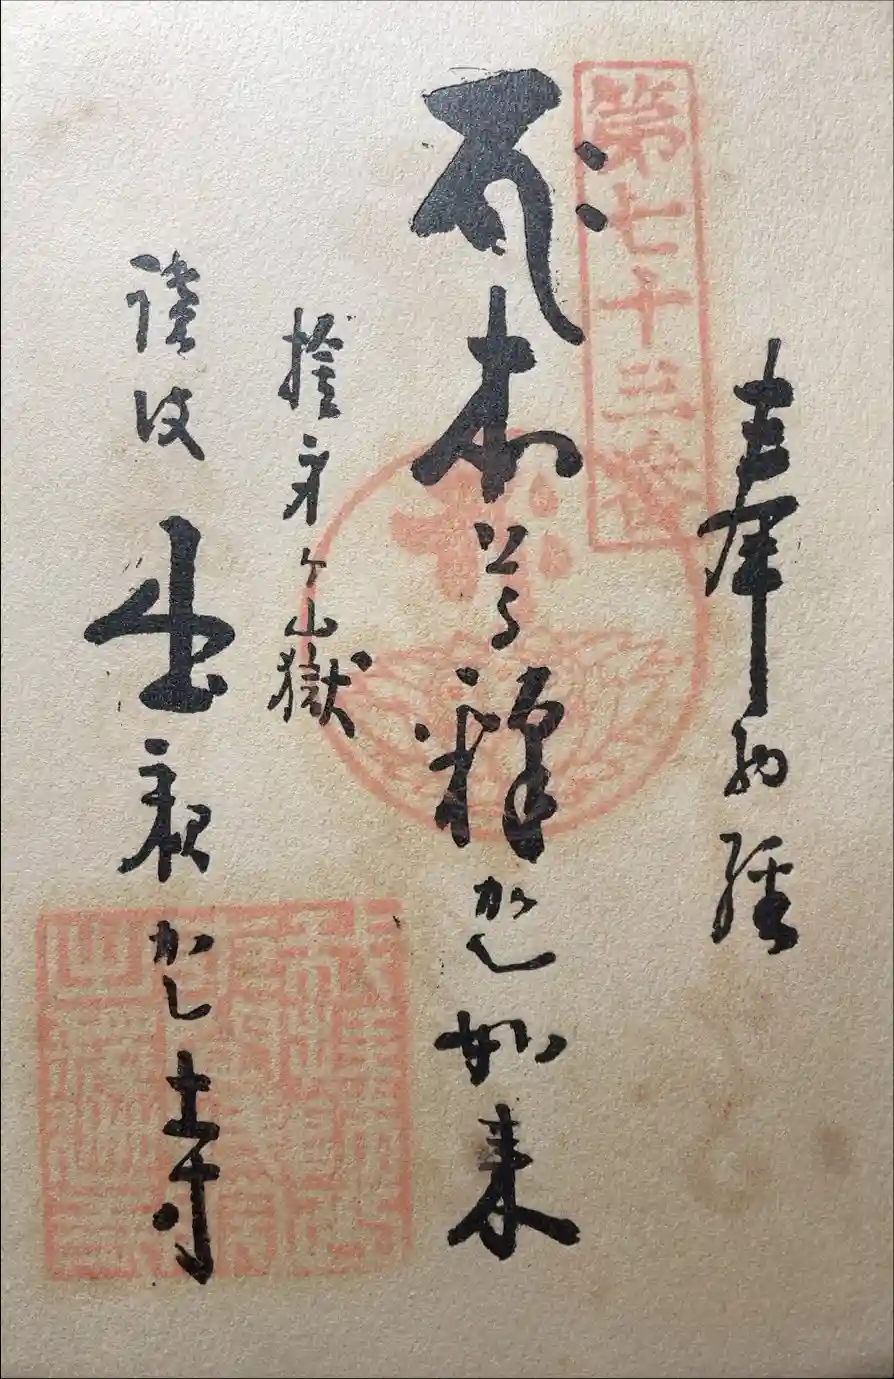 奉納経
第七十三番
𑖥𑖾 本尊釋迦如来
捨身ヶ嶽
讃岐 出釈迦寺